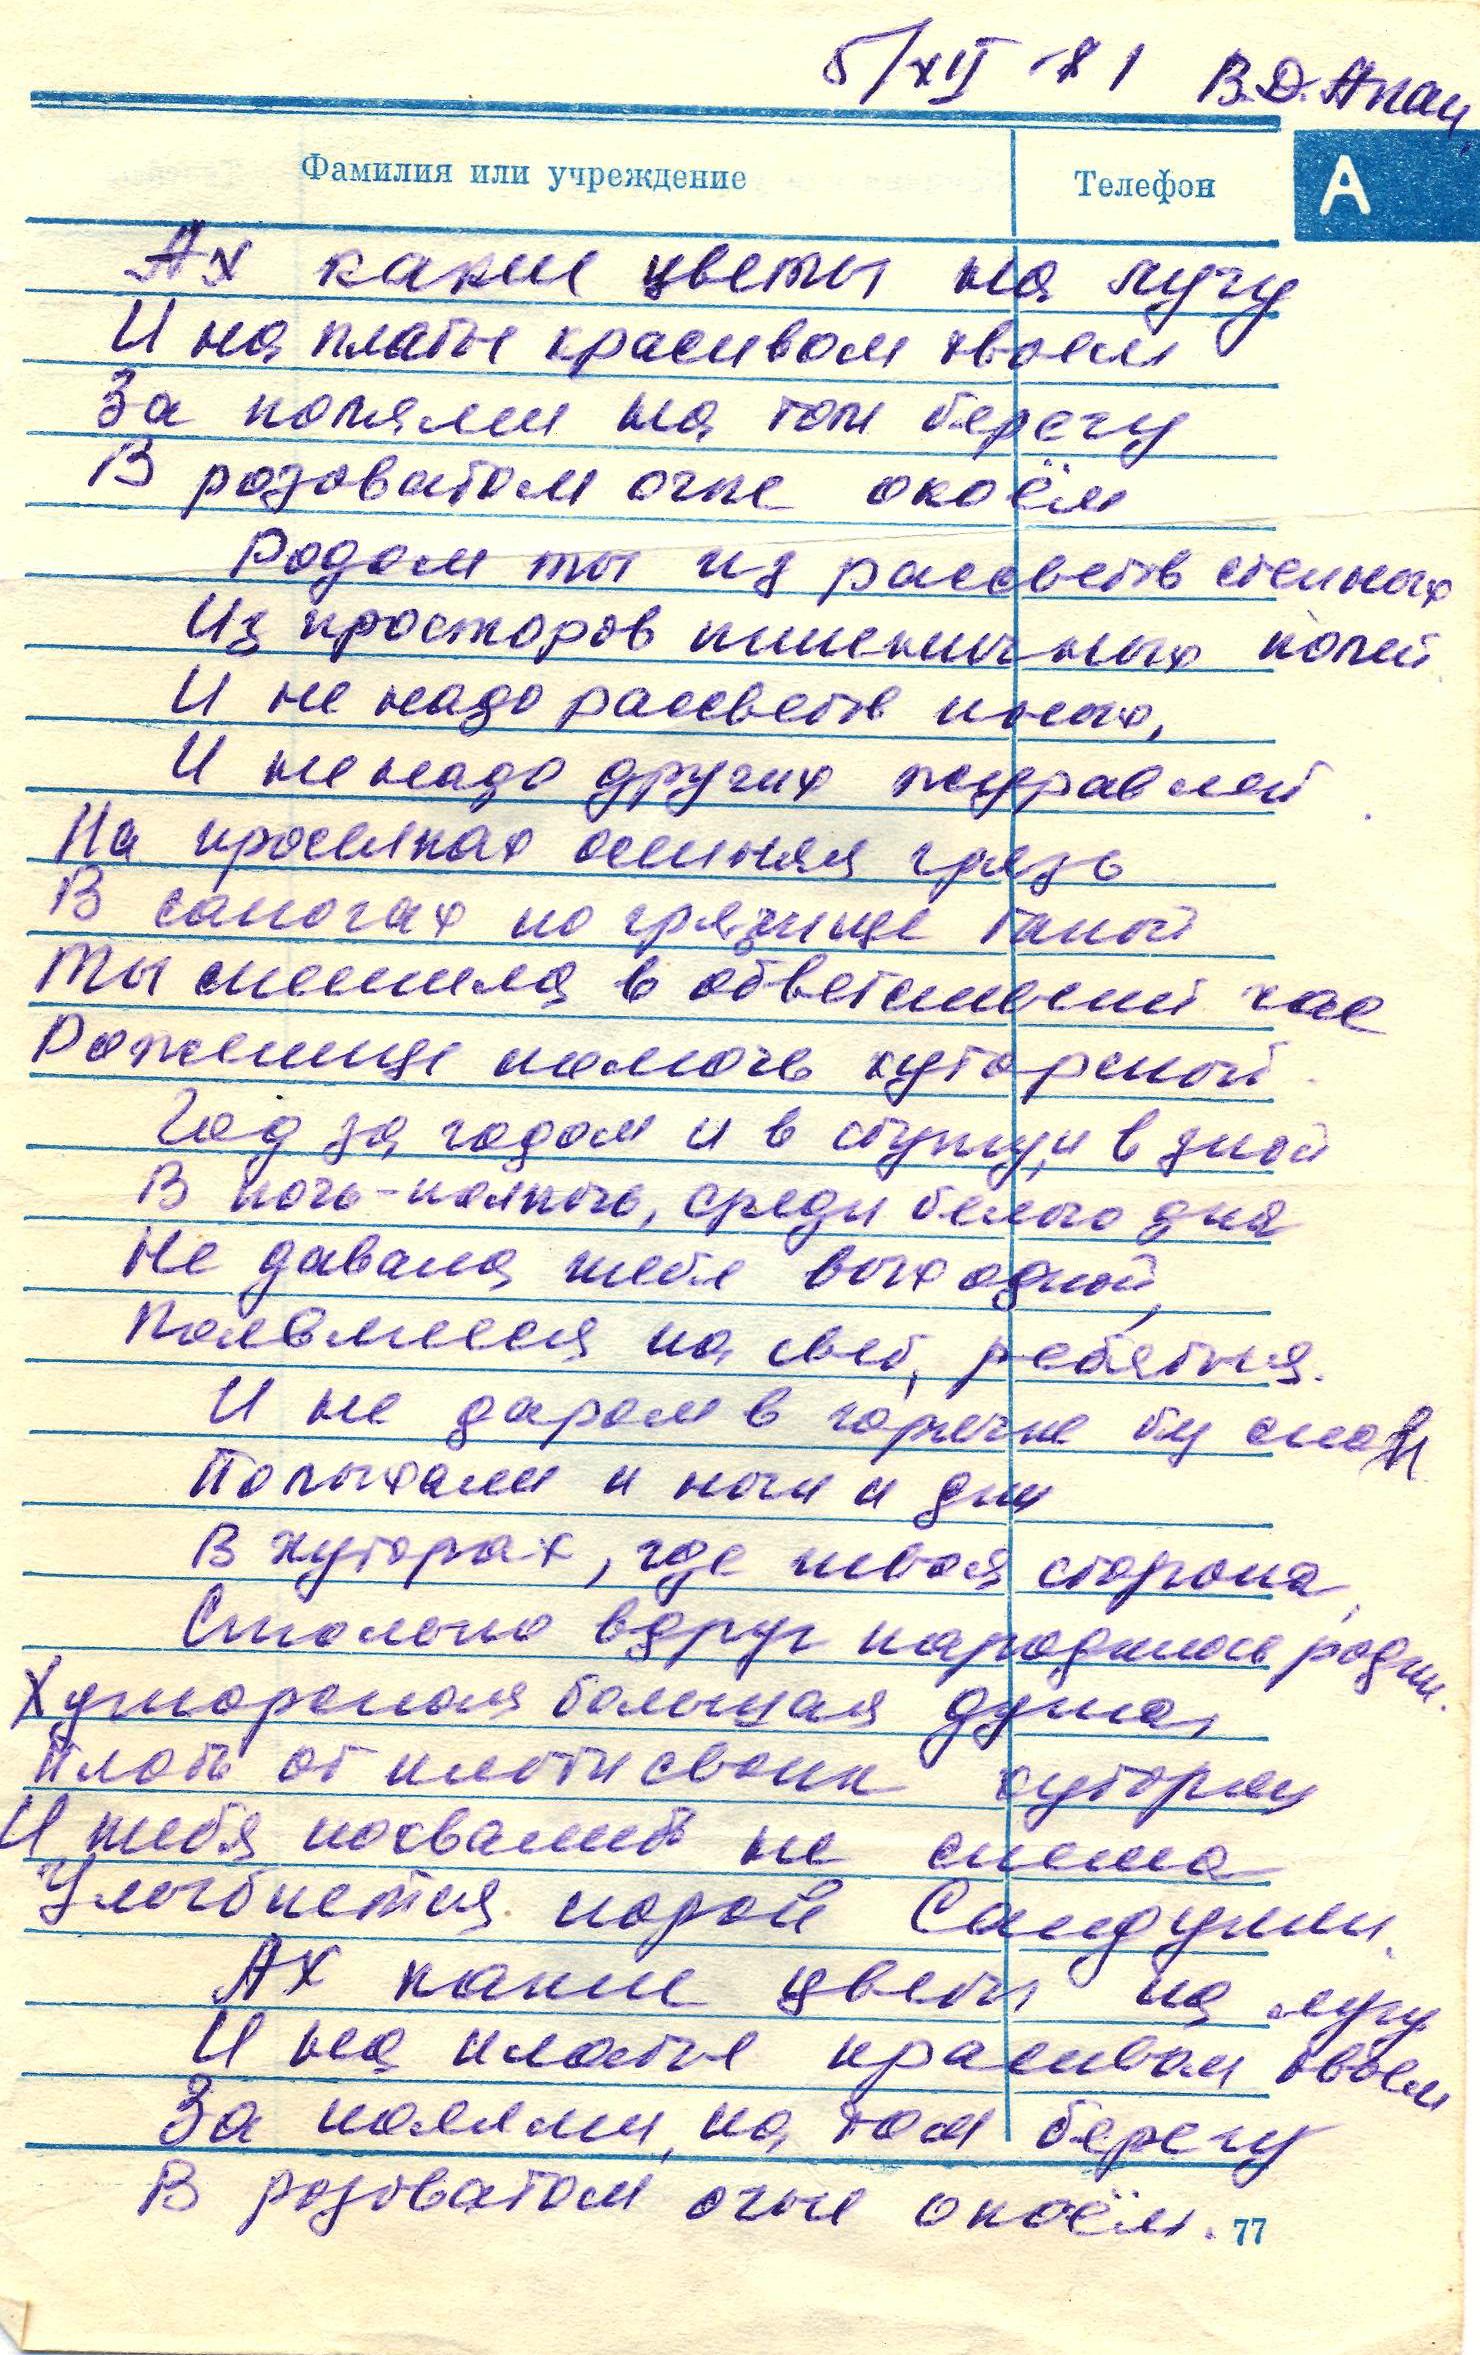 5/XII-81 В.Д. Апац
Фамилия или учреждение Телефон А
Ах какие цветы на лугу
И на платье красивом твоем
За полями на том берегу
В розоватом огне окоём
Родом ты из рассветов степных
Из просторов пшеничных полей
И не надо рассветов иных,
И не надо других журавлей
На проселках осенняя грязь
В сапогах по грязище такой
Ты спешила в ответственный час
Роженице помочь хуторской.
Год за годом и в стужу, и в зной
В ночь-полночь, среди белого дня
Не давала тебе выходной,
Появляясь на свет, ребятня.
И не даром в горячке без сна
Полыхали и ночи и дни
В хуторах, где твоя сторона,
Столько вдруг народилось родни.
Хуторская большая душа,
Плоть от плоти своих хуторян
И тебя похвалить не спеша
Улыбнется порой
Ах какие цветы на лугу
И на платье красивом твоем
За полями, на том берегу
В розоватом огне окоём.
77